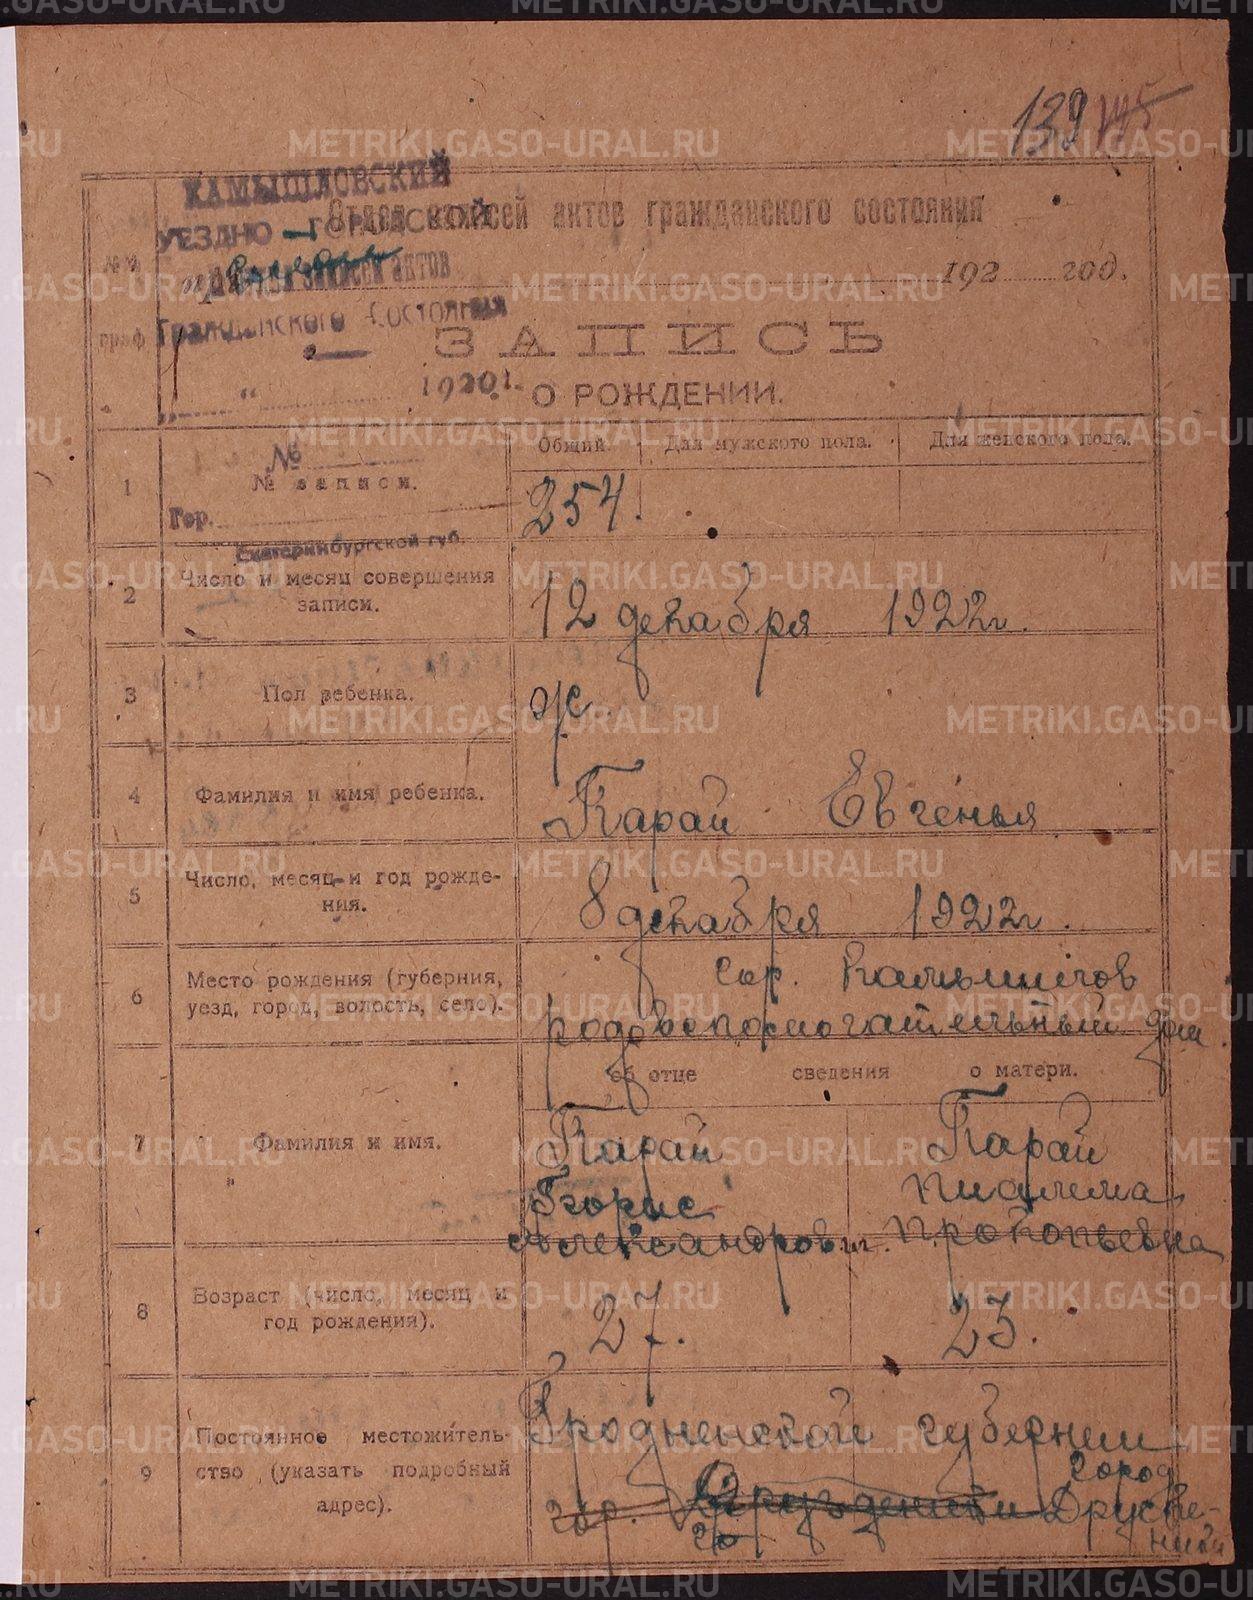 139 145
КАМЫШЛОВСКИЙ
Отдел записей актов гражданского состояния
УЕЗДНО-ГОРОДСКОЙ
№№
записи актов
192 год.
граф
Гражданского Состояния
ЗАПИСЬ
„ “ 1920 г.
О РОЖДЕНИИ.
Общий Для мужского пола. Для женского пола.
№
1 № записи. 254.
Гор.
Екатеринбургской губ.
2 Число и месяц совершения записи. 12 декабря 1922 г.
3 Пол ребенка. ж.
4 Фамилия и имя ребенка. Карай Евгенья
5 Число, месяц и год рождения. 8 декабря 1922 г.
6 Место рождения (губерния, уезд, город, волость, село). гор. Камышлов
родовспомогательный дом.
об отце сведения о матери.
7 Фамилия и имя. Карай Карай
Борис
Александрович. Прокопьевна
8 Возраст (число, месяц и год рождения). 27. 23.
9 Постоянное местожительство (указать подробный адрес). Гродненской губернии
город
гор.
METRIKI.GASO-URAL.RU